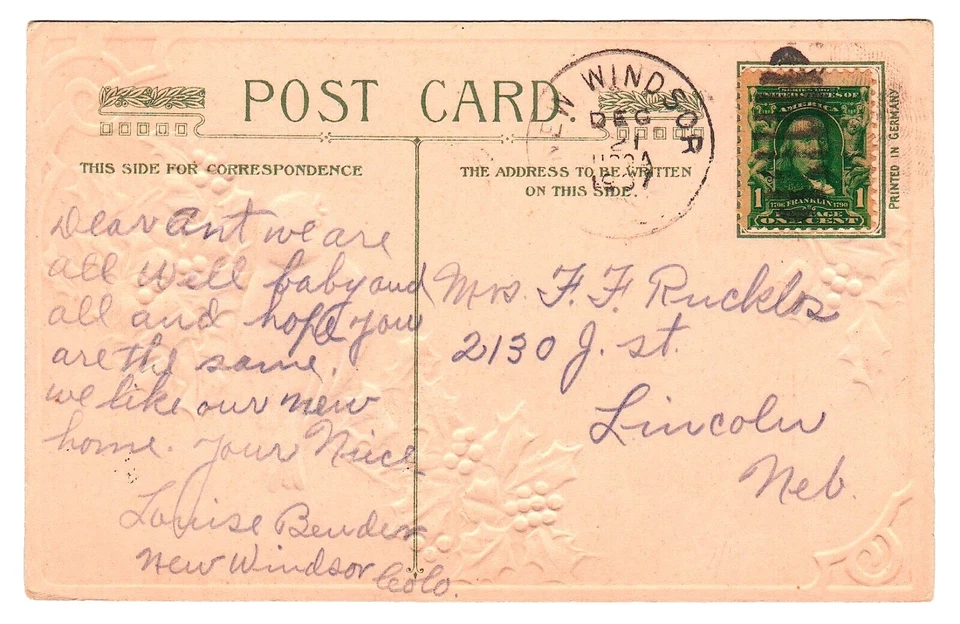 POST CARD
THIS SIDE FOR CORRESPONDENCE
THE ADDRESS TO BE WRITTEN
ON THIS SIDE.
WINDSOR
DEC
21
1907
SERIES 1902
UNITED STATES OF
AMERICA
1 1706 FRANKLIN 1790 1
POSTAGE
ONE CENT
PRINTED IN GERMANY
Dear Ant we are
all well baby and
all and hope you
are the same.
we like our new
home. your Niice
Louise Bender
New Windsor Colo.
Mrs. F. F. Rucklos
2130 J. st.
Lincoln
Neb.